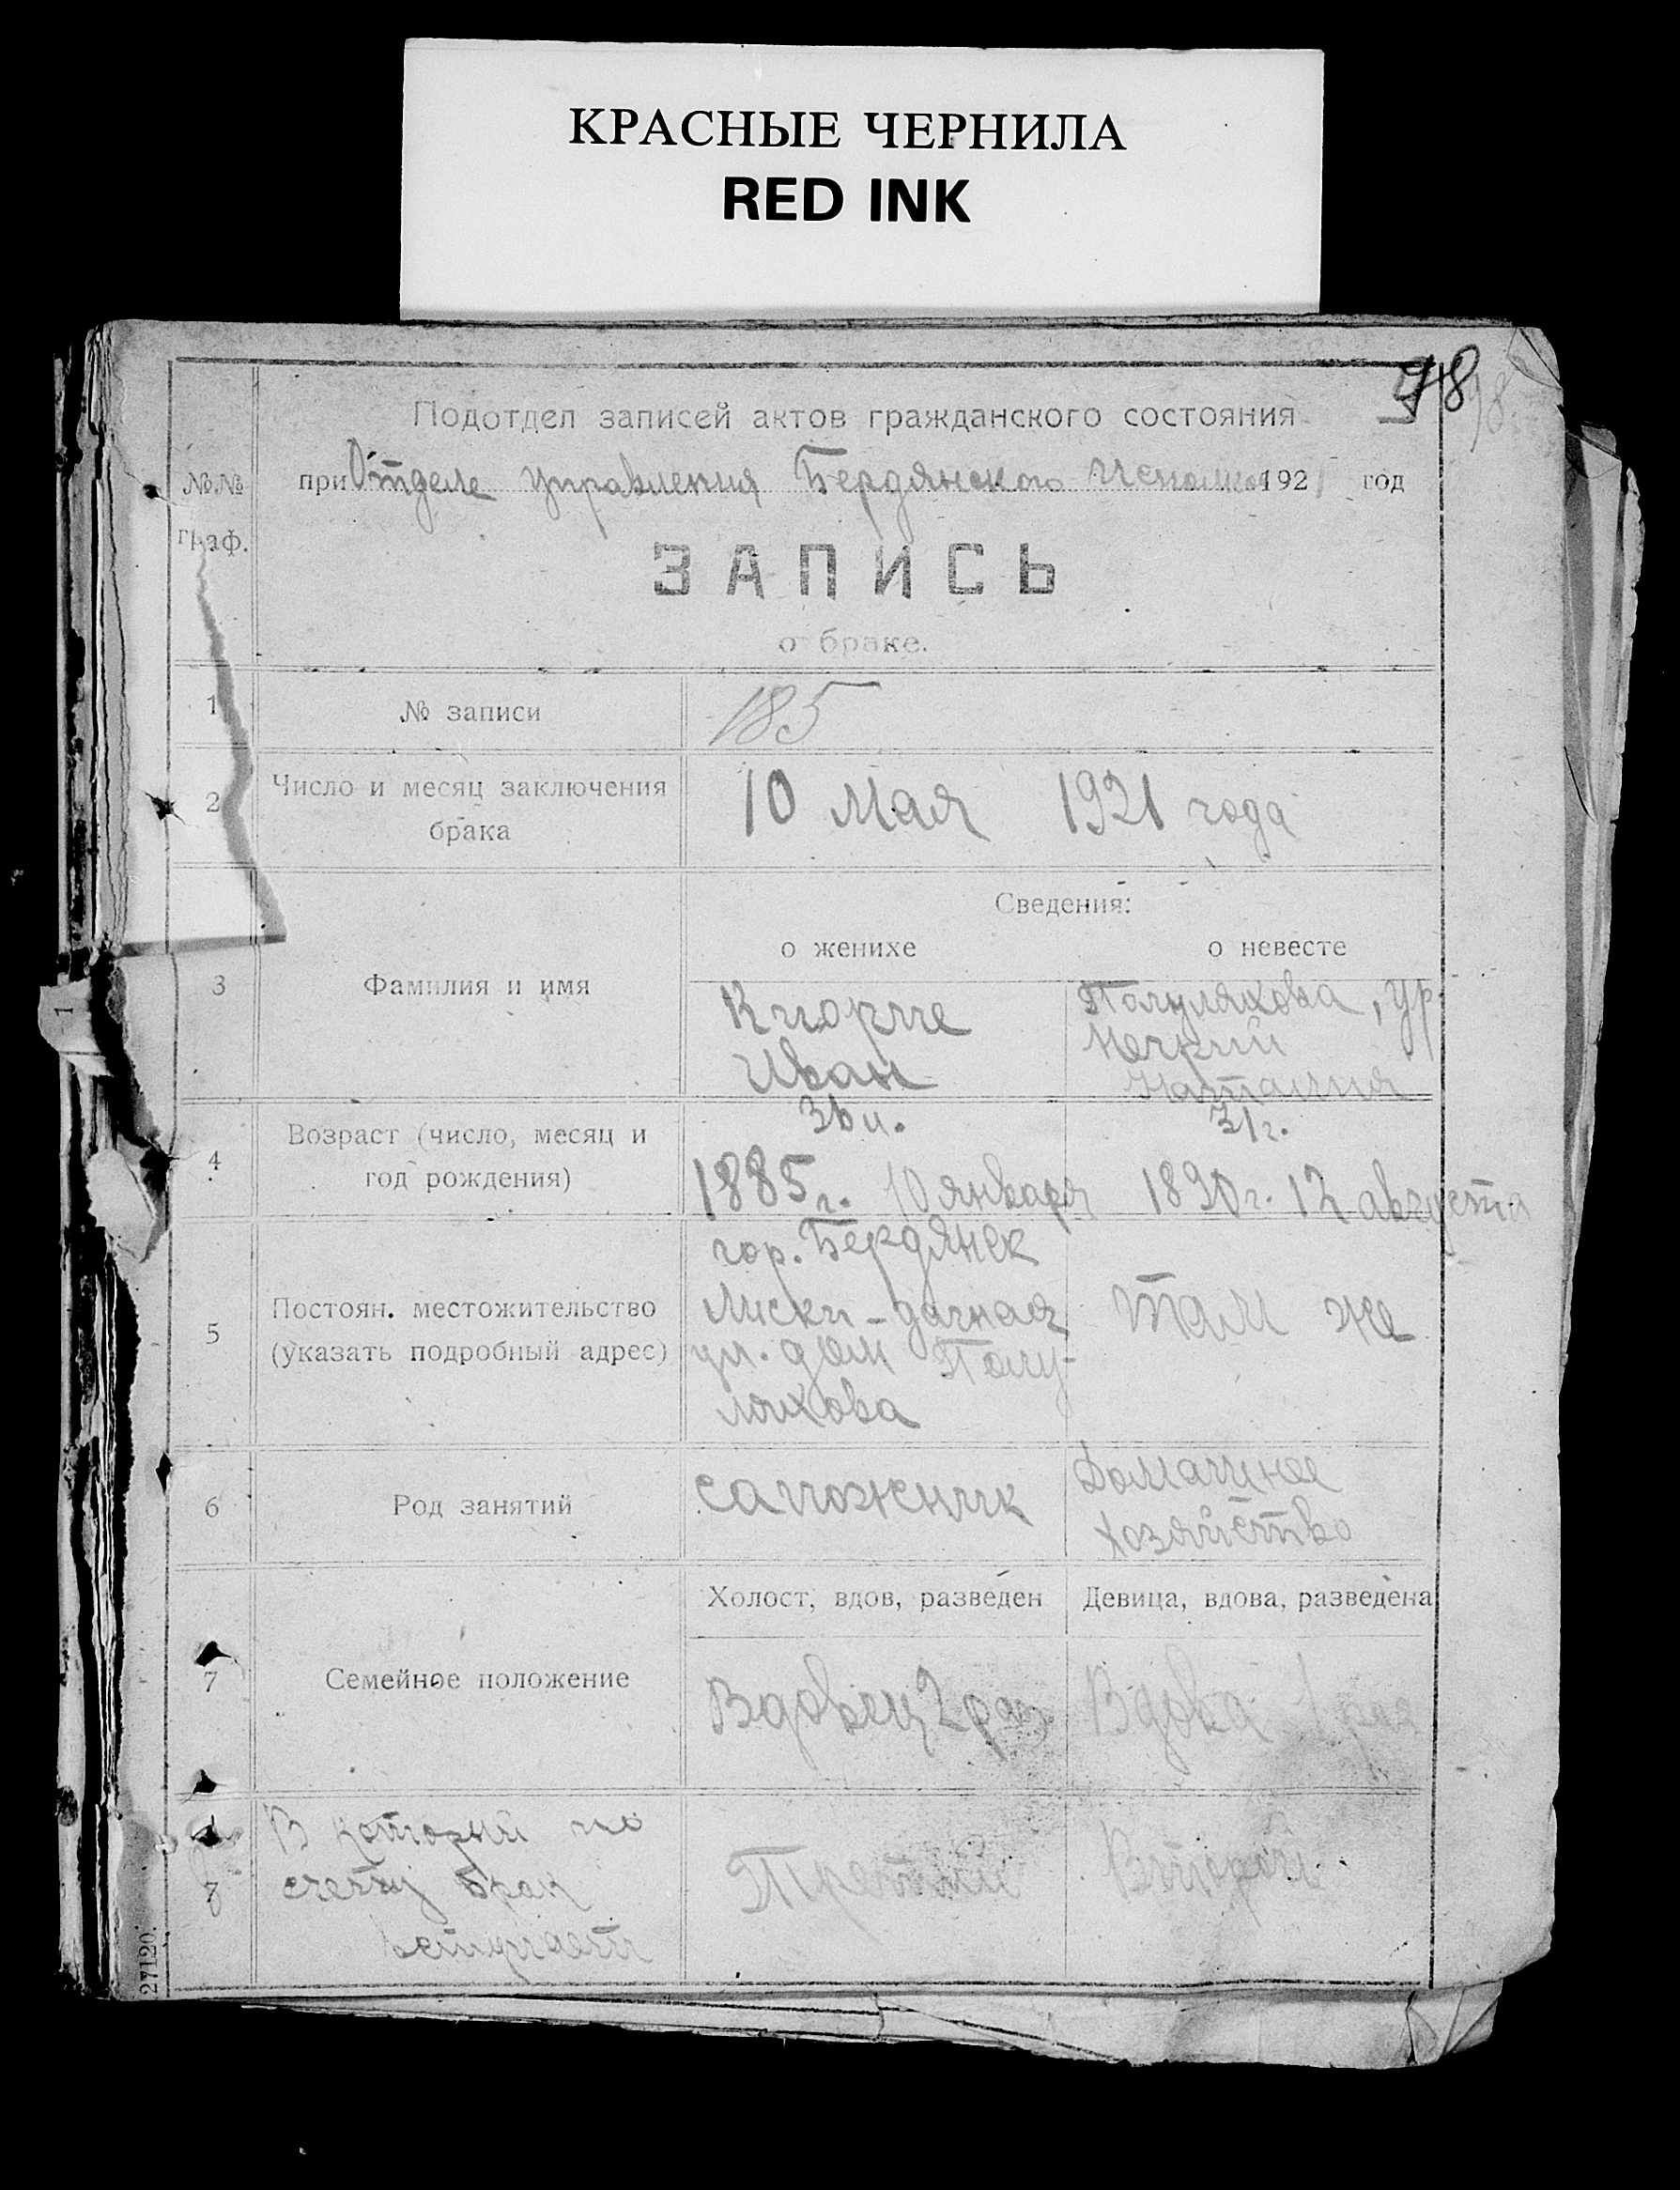 КРАСНЫЕ ЧЕРНИЛА
RED INK
98
98
Подотдел записей актов гражданского состояния
№№ граф.
при Отделе Управления Бердянского 1921 год
ЗАПИСЬ
о браке.
1 № записи 185
2 Число и месяц заключения брака 10 мая 1921 года
Сведения:
о женихе о невесте
3 Фамилия и имя
Кюрпе
Иван
Полуляхова, ур.
Наталия
4 Возраст (число, месяц и год рождения)
36 л.
1885 г. 10 января
31 г.
1890 г. 12 августа
5 Постоян. местожительство (указать подробный адрес)
гор. Бердянск
Лиски-дачная
ул. дом Полу-
ляхова
Там же
6 Род занятий
сапожник
Домашнее
хозяйство
Холост, вдов, разведен Девица, вдова, разведена
7 Семейное положение
Вдовец 2 раз
Вдова 1 раз
8 В который по
счету брак
вступает
Третий
Второй
27120.
1